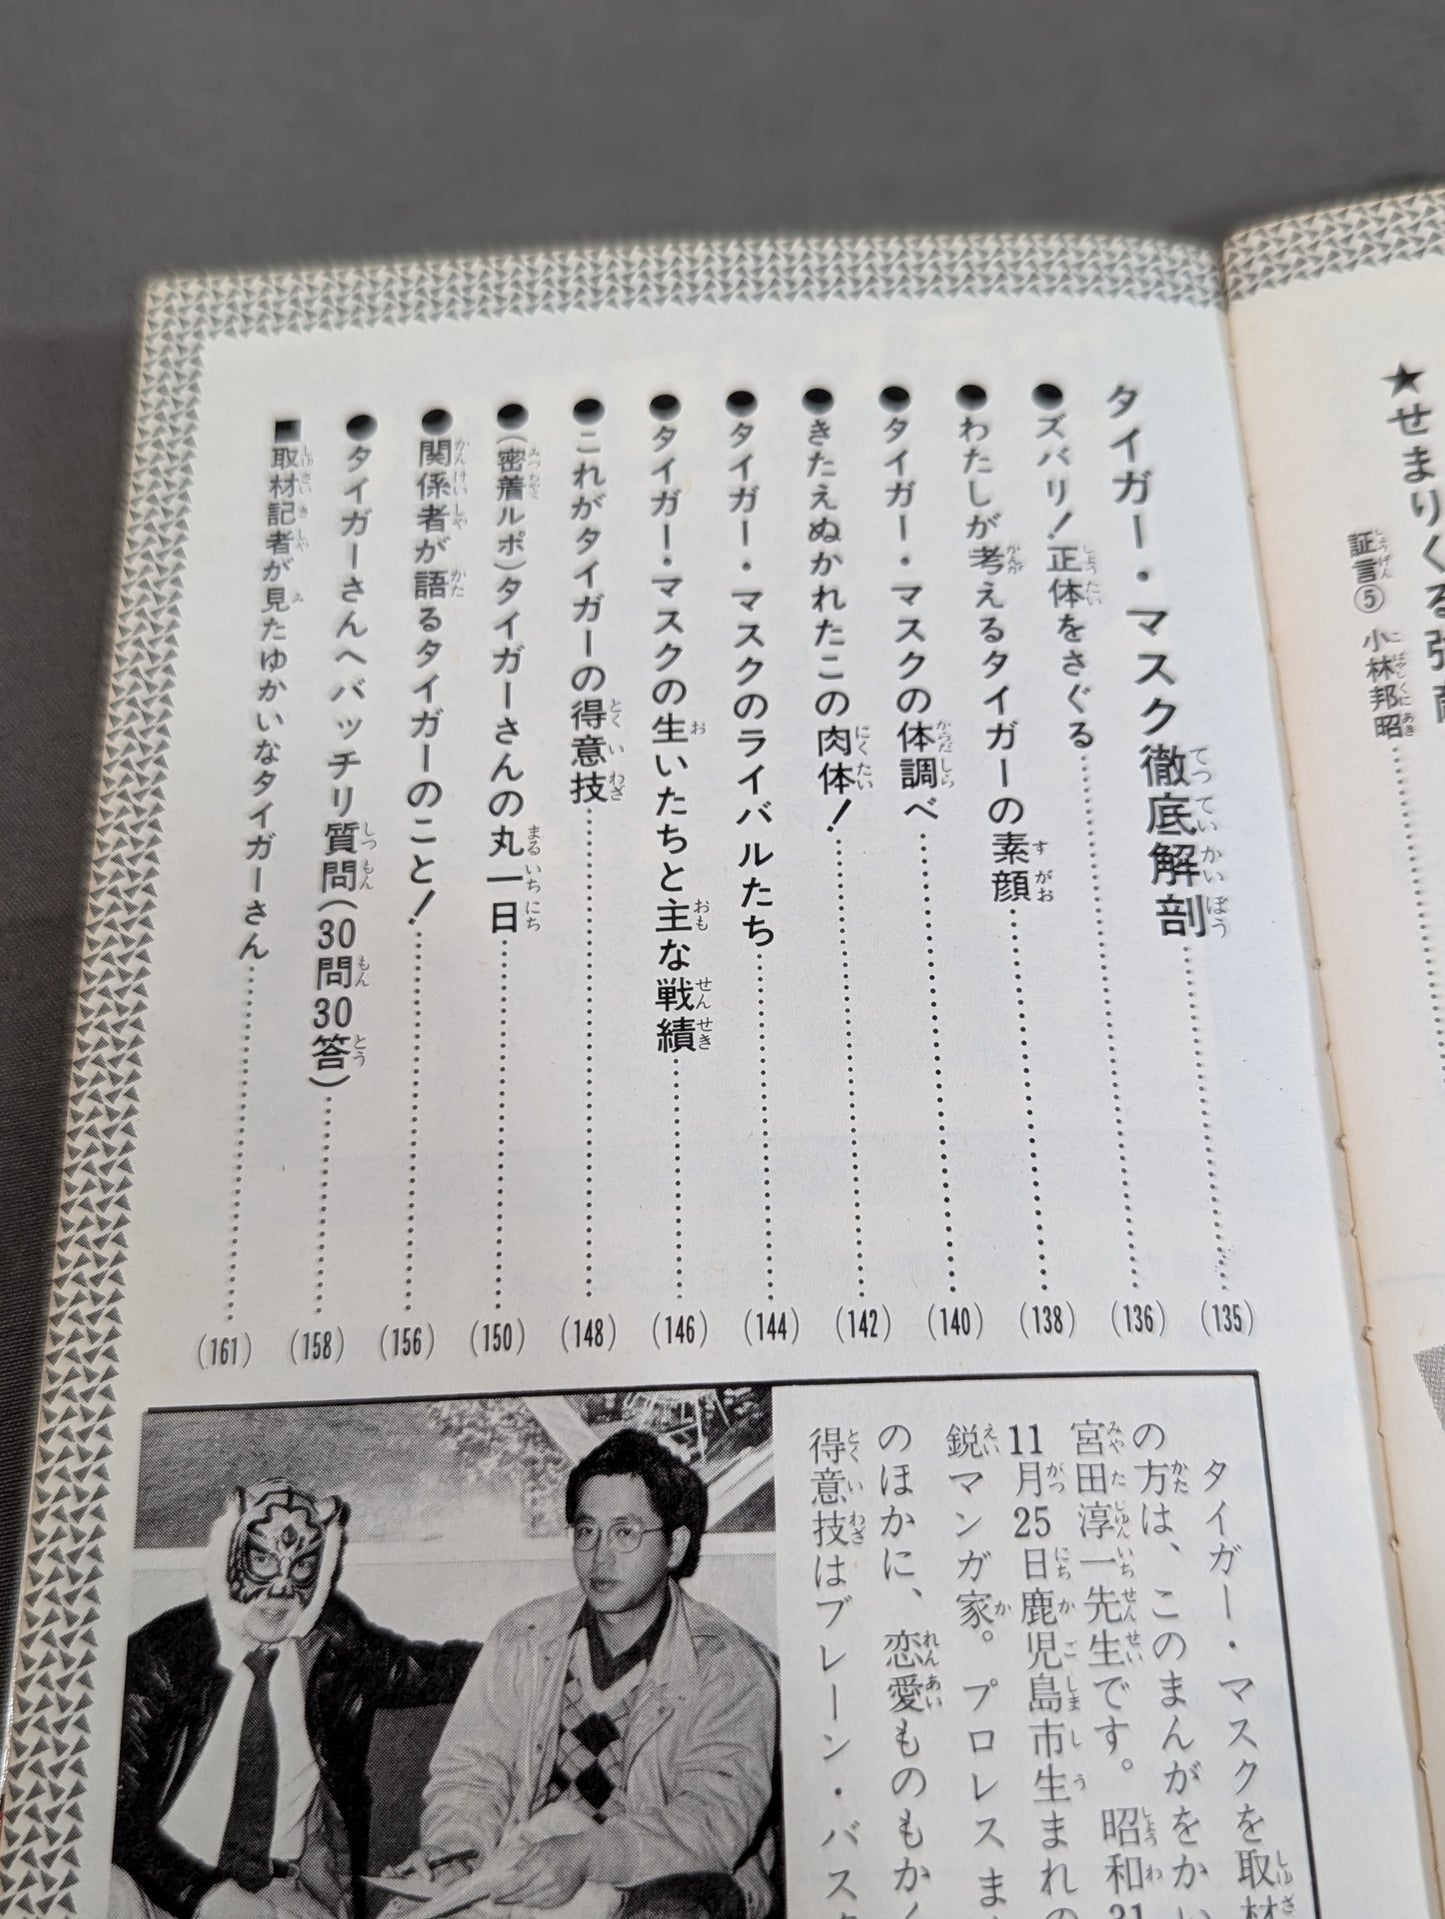 ★せまりくる強敵
証言⑤ 小林邦昭
タイガー・マスク徹底解剖 (135)
●ズバリ!正体をさぐる (136)
●わたしが考えるタイガーの素顔 (138)
●タイガー・マスクの体調べ (140)
●きたえぬかれたこの肉体! (142)
●タイガー・マスクのライバルたち (144)
●タイガー・マスクの生いたちと主な戦績 (146)
●これがタイガーの得意技 (148)
●(密着ルポ)タイガーさんの丸一日 (150)
●関係者が語るタイガーのこと! (156)
●タイガーさんへバッチリ質問(30問30答) (158)
■取材記者が見たゆかいなタイガーさん (161)
タイガー・マスクを取材
の方は、このまんがをかい
宮田淳一先生です。昭和31
11月25日鹿児島市生まれの
鋭マンガ家。プロレスま
のほかに、恋愛ものもかく
得意技はブレーン・バスタ